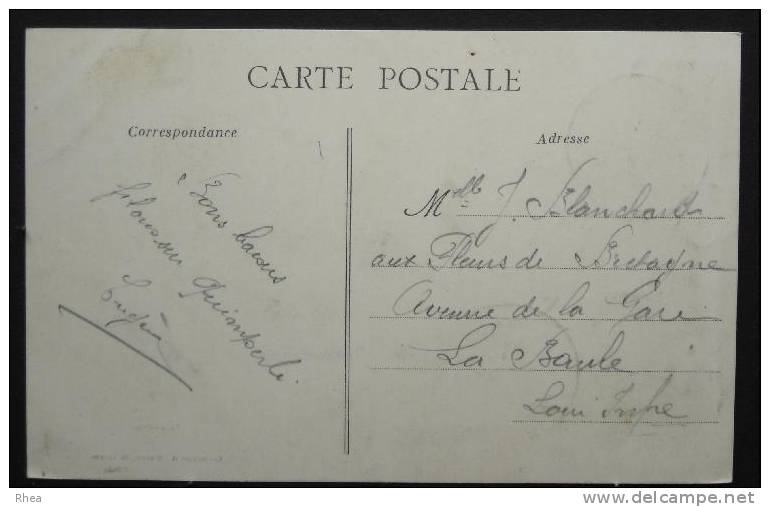 CARTE POSTALE
Correspondance
Bons baisers
Quimperlé
Adresse
Melle J. Blanchard
aux Fleurs de Bretagne
Avenue de la Gare
La Baule
Loire Infre
Rhea
delcampe.net